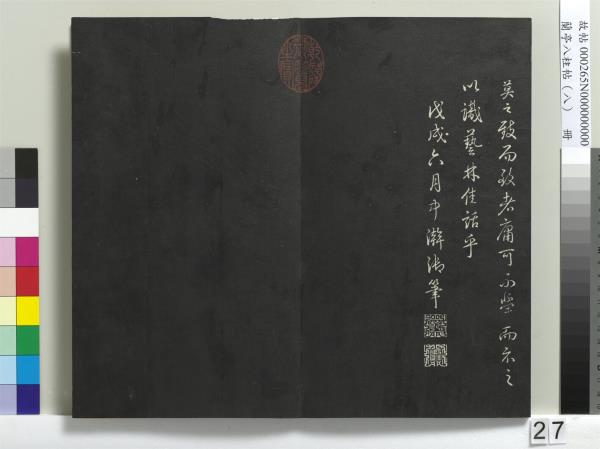 故帖 000265N000000000
蘭亭八柱帖(八) 冊
莫之致而致者庸可不舉而示之
以識藝林佳話乎
戊戌六月中澣御筆
27